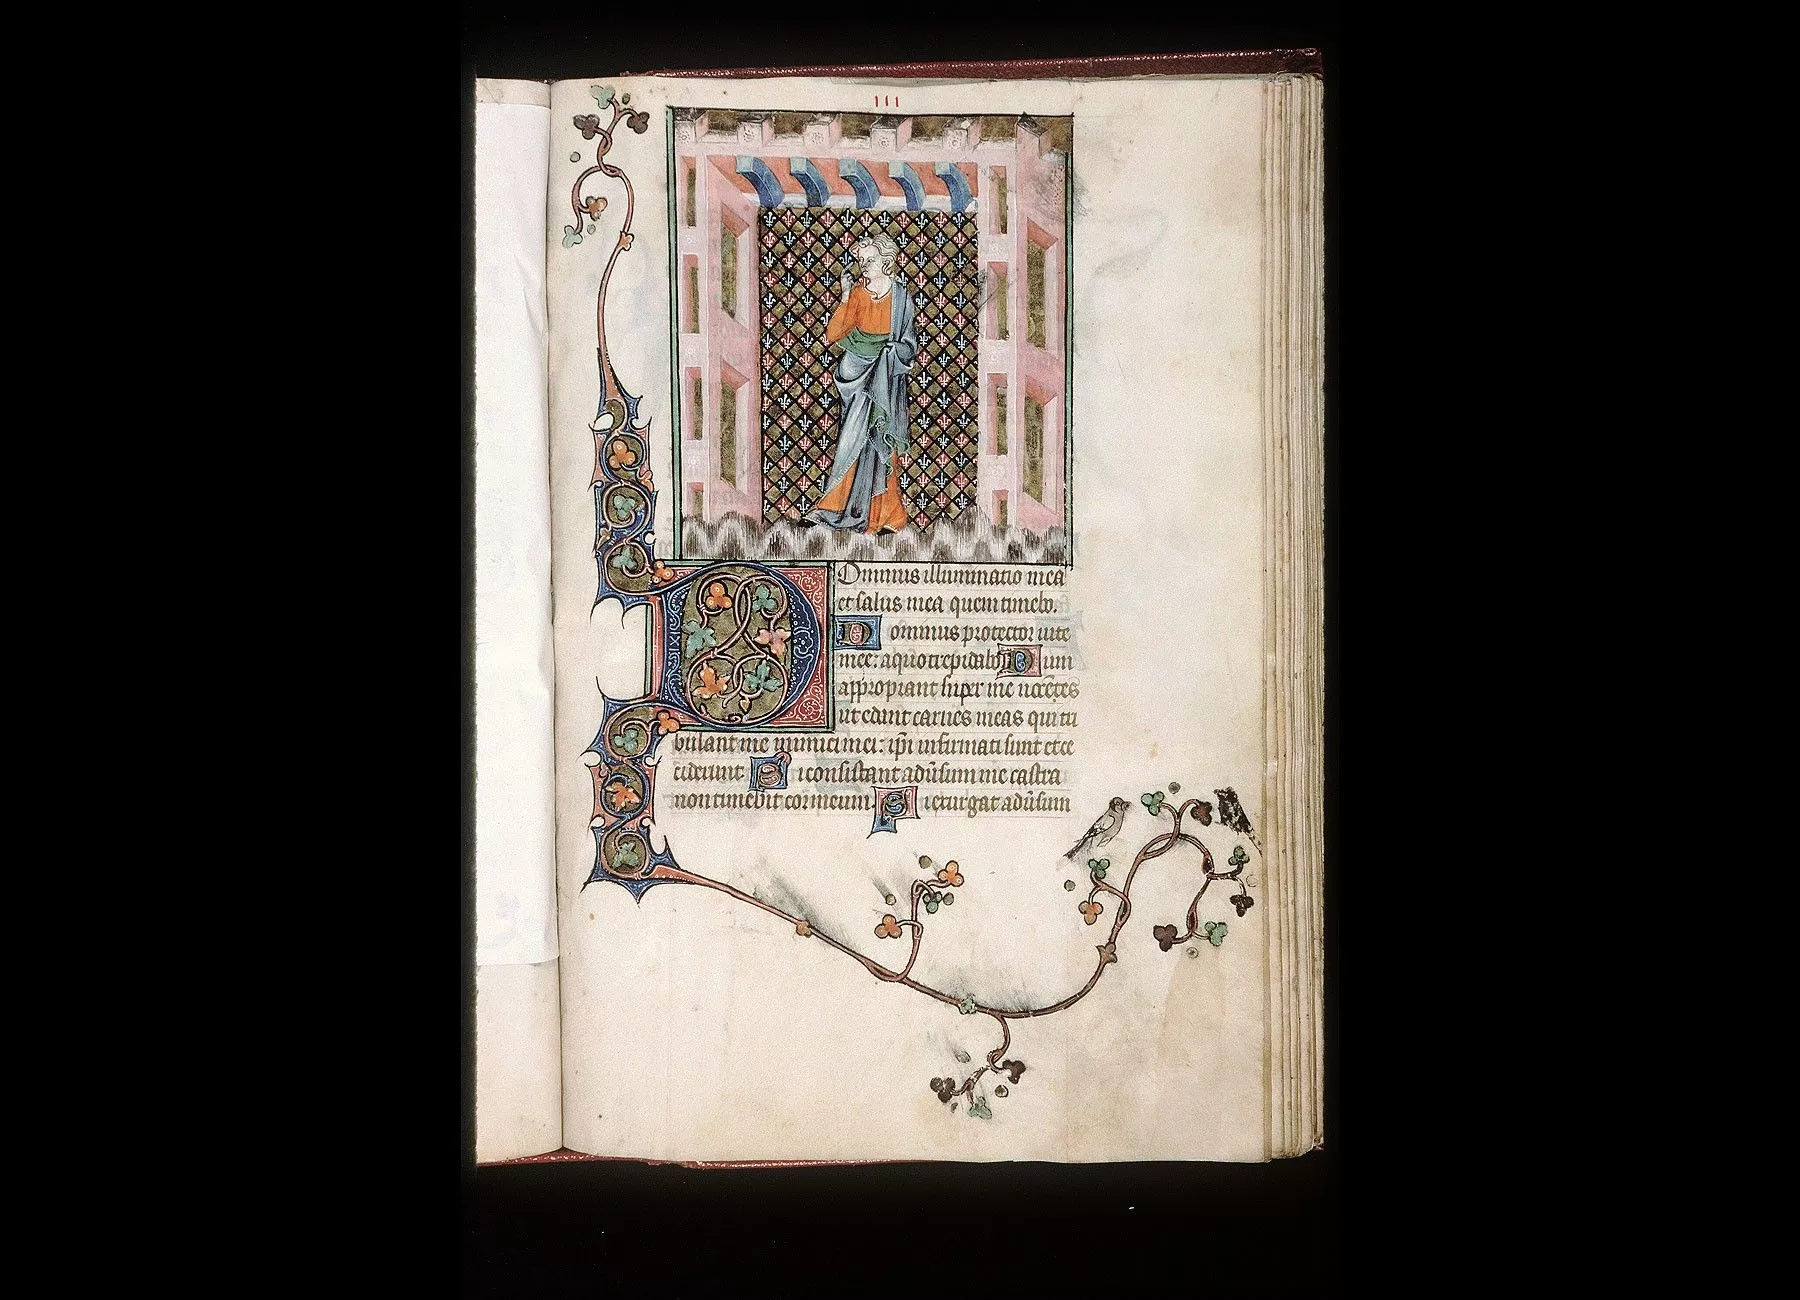 III
Dominus illuminatio mea
et salus mea quem timebo.
Dominus protector uite
mee: a quo trepidabo Dum
appropiant super me nocẽtes
ut edant carnes meas qui tri
bulant me inimici mei: ip̃i infirmati sunt et ce
ciderunt Si consistant adũsum me castra
non timebit cor meum. Si exurgat adũsum